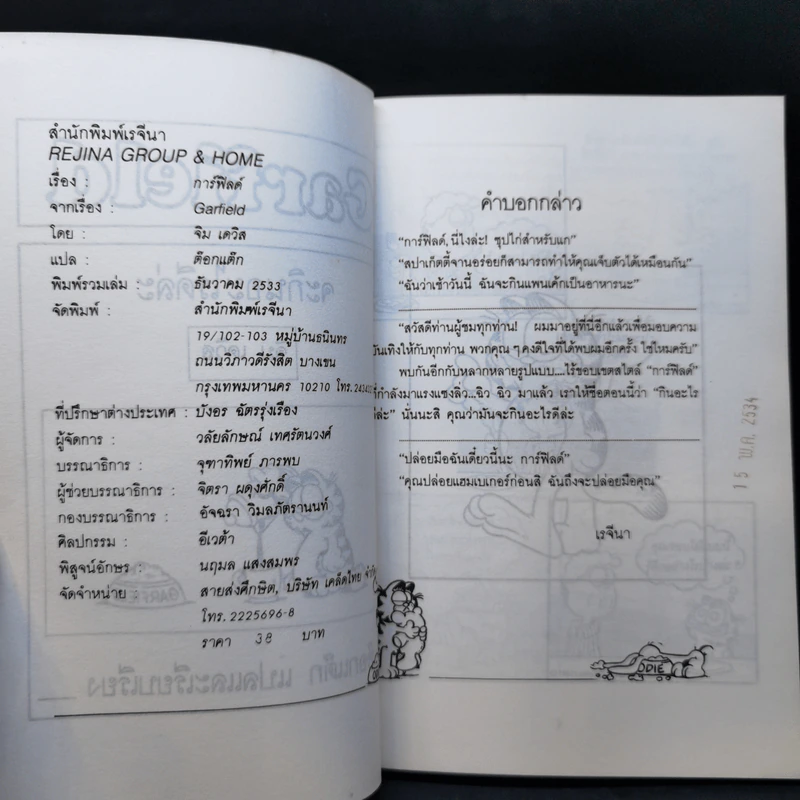 สำนักพิมพ์เรจีนา
REJINA GROUP & HOME
เรื่อง : การ์ฟิลด์
จากเรื่อง : Garfield
โดย : จิม เดวิส
แปล : ต๊อกแต๊ก
พิมพ์รวมเล่ม : ธันวาคม 2533
จัดพิมพ์ : สำนักพิมพ์เรจีนา
19/102-103 หมู่บ้านธนินทร
ถนนวิภาวดีรังสิต บางเขน
กรุงเทพมหานคร 10210 โทร.
ที่ปรึกษาต่างประเทศ : บังอร ฉัตรรุ่งเรือง
ผู้จัดการ : วลัยลักษณ์ เทศรัตนวงศ์
บรรณาธิการ : จุฑาทิพย์ ภารพบ
ผู้ช่วยบรรณาธิการ : จิตรา ผดุงศักดิ์
กองบรรณาธิการ : อัจฉรา วิมลภัตรานนท์
ศิลปกรรม : อีเวต้า
พิสูจน์อักษร : นฤมล แสงสมพร
จัดจำหน่าย : สายส่งศึกษิต, บริษัท เคล็ดไทย
โทร. 2225696-8
ราคา 38 บาท
คำบอกกล่าว
“การ์ฟิลด์, นี่ไงล่ะ! ซุปไก่สำหรับแก”
“สปาเก็ตตี้จานอร่อยก็สามารถทำให้คุณเจ็บตัวได้เหมือนกัน”
“ฉันว่าเช้าวันนี้ ฉันจะกินแพนเค้กเป็นอาหารนะ”
“สวัสดีท่านผู้ชมทุกท่าน! ผมมาอยู่ที่นี่อีกแล้วเพื่อมอบความ
บันเทิงให้กับทุกท่าน พวกคุณ ๆ คงดีใจที่ได้พบผมอีกครั้ง ใช่ไหมครับ”
พบกันอีกกับหลากหลายรูปแบบ....ไร้ขอบเขตสไตล์ “การ์ฟิลด์”
ที่กำลังมาแรงแซงลิ่ว...ฉิว ฉิว มาแล้ว เราให้ชื่อตอนนี้ว่า “กินอะไร
ดีล่ะ” นั่นนะสิ คุณว่ามันจะกินอะไรดีล่ะ
“ปล่อยมือฉันเดี๋ยวนี้นะ การ์ฟิลด์”
“คุณปล่อยแฮมเบเกอร์ก่อนสิ ฉันถึงจะปล่อยมือคุณ”
เรจีนา
ODIE
15 พ.ค. 2534